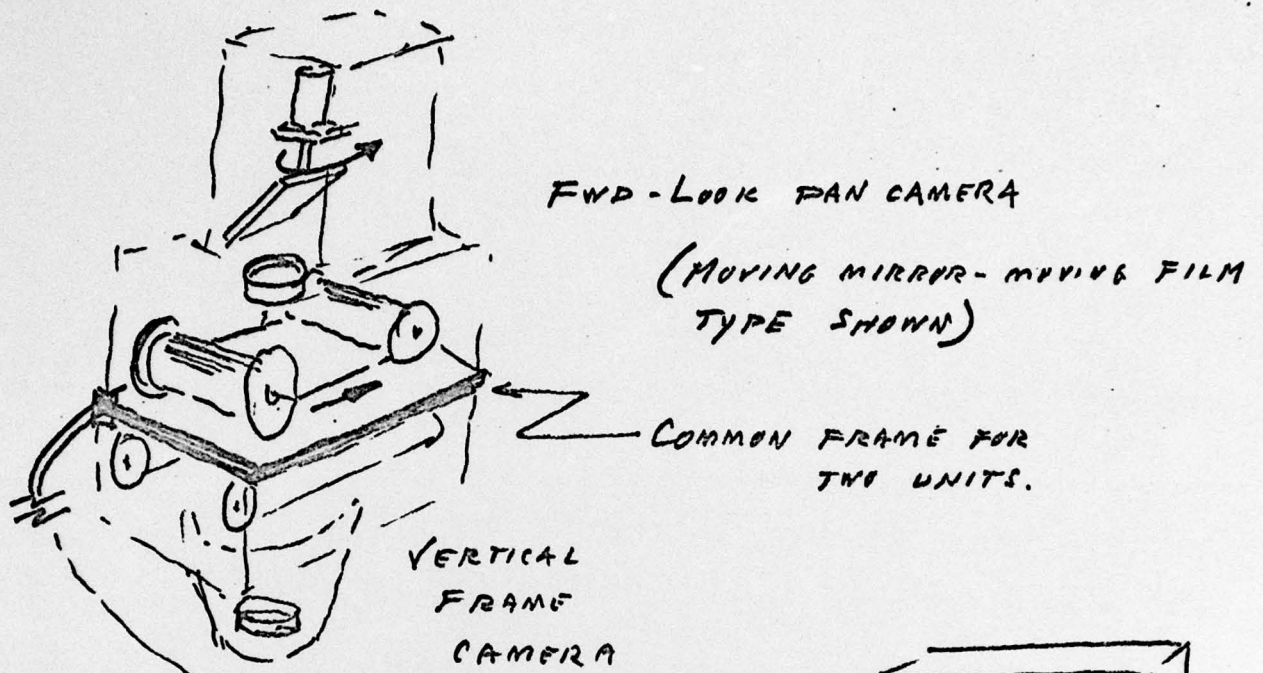 FWD-LOOK PAN CAMERA
(MOVING MIRROR-MOVING FILM
TYPE SHOWN)
COMMON FRAME FOR
TWO UNITS.
VERTICAL
FRAME
CAMERA